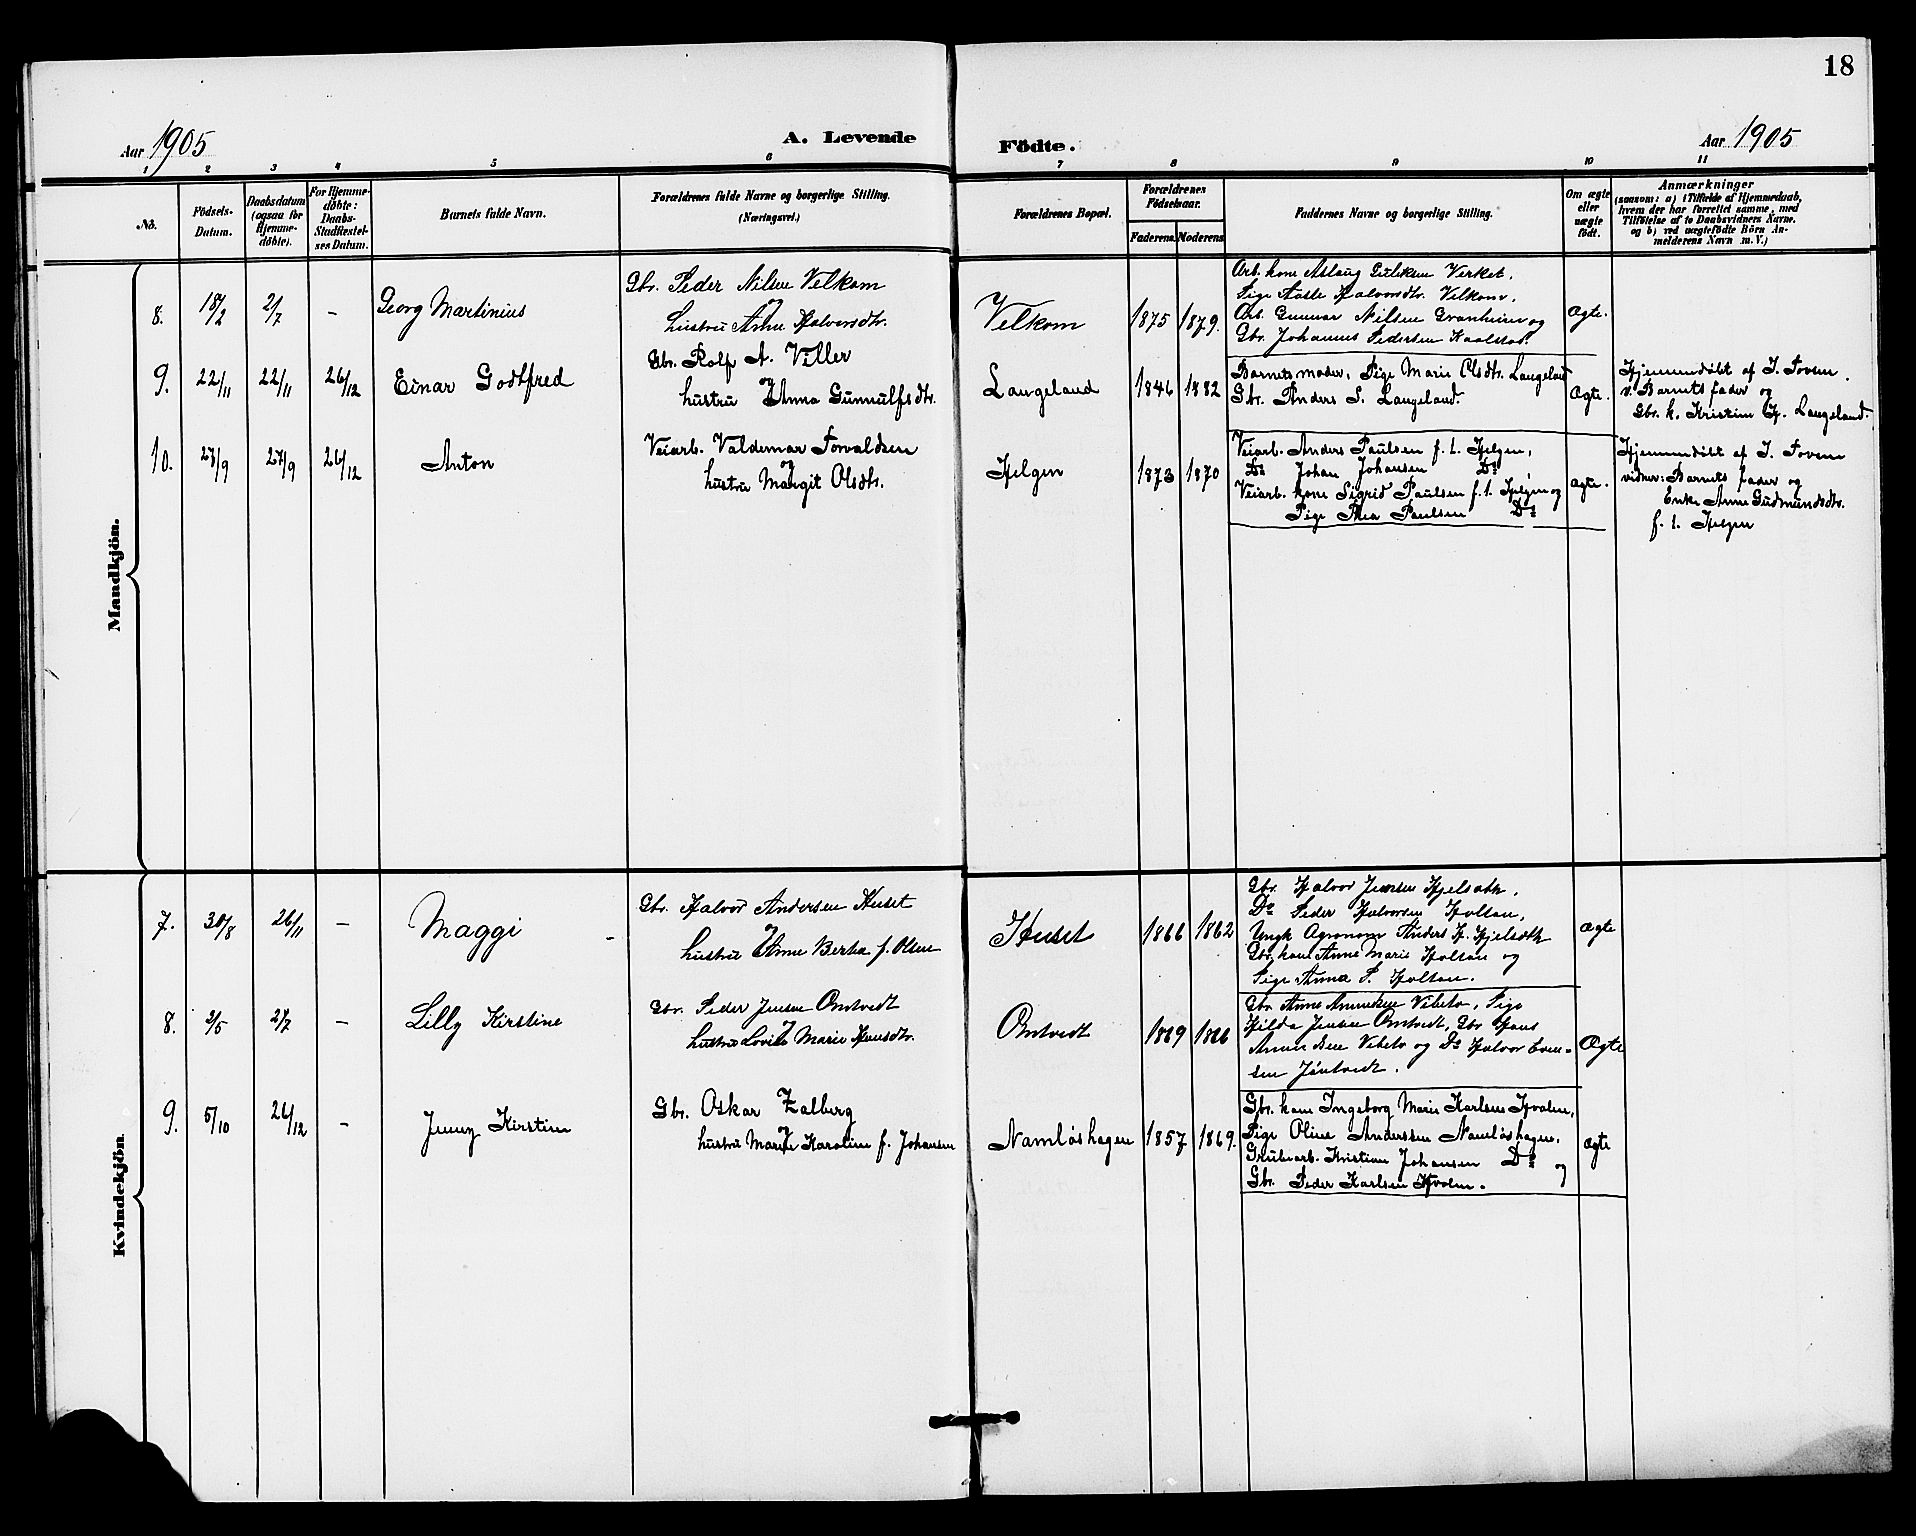 18
Aar 1905
A. Levende
Födte.
Aar 1905
1 2 3 4 5 6 7 8 9 10 11
No.
Födsels-
Datum.
Daabsdatum
(ogsaa for
Hjemme-
døbte).
For Hjemme-
døbte:
Daabs-
Stadfæstel-
ses Datum.
Barnets fulde Navn.
Forældrenes fulde Navne og borgerlige Stilling.
(Næringsvei.)
Forældrenes Bopæl.
Forældrenes
Födselsaar.
Faderens
Moderens
Faddernes Navne og borgerlige Stilling.
Om ægte
eller
uægte
födt.
Anmærkninger
(saasom: a) i Tilfælde af Hjemmedaab,
hvem der har forrettet samme, med
Tilföielse af to Daabsvidners Navne.
og b) ved uægtefödte Börn An-
melderens Navn m. V.)
Mandkjön.
8. 18/2 2/7 – Georg Martinius
Gbr. Peder Nilsen Velkom
og
hustru Anne Halvorsdtr.
Velkom 1875 1879.
Arb. kone Aslaug Guliksen Verket.
Pige Aasle Halvorsdtr. Velkom.
Arb. Gunnar Nilsen Granheim og
Gbr. Johannes Pedersen Kaalstad.
Ægte.
9. 22/11 22/11 26/12 Einar Godtfred
Gbr. Rolf A. Viller
og
hustru Anna Gunnulfsdtr.
Langeland 1846 1882
Barnets moder, Pige Marie Olsdtr. Langeland
Gbr. Anders S. Langeland.
Ægte.
Hjemmedöbt af I. Tovsen.
v. Barnets fader og
Gbr. k. Kristine H. Langeland.
10. 27/9 27/9 26/12 Anton
Veiarb. Valdemar Torvaldsen
og
hustru Margit Olsdtr.
Helgen 1873 1870
Veiarb. Anders Paulsen f. t. Helgen,
Do Johan Johansen Do
Veiarb. kone Sigrid Paulsen f. t. Helgen og
Pige Thea Paulsen Do
Ægte.
Hjemmedöbt af I. Tovsen
vidner: Barnets fader og
Enke Anne Gudmundsdtr.
f. t. Helgen
Kvindekjön.
7. 30/8 26/11 – Maggi
Gbr. Halvor Andersen Huset
og
hustru Anne Bertha f. Olsen
Huset 1866 1862
Gbr. Halvor Jensen Hjelseth.
Do Peder Halvorsen Holtan,
Ungk Agronom Anders H. Hjelseth
Gbr. kone Anne Marie Holtan og
Pige Anna P. Holtan.
Ægte
8. 2/5 2/7 – Lilly Kirstine
Gbr. Peder Jensen Omtvedt
og
hustru Lovise Marie Hansdtr.
Omtvedt 1869 1866
Gbr. Anne Amundsen Vibeto, Pige
Hilda Jensen Omtvedt, Gbr Hans
Amundsen Vibeto og Do Halvor Even-
sen Jöntvedt.
Ægte
9. 5/10 26/12 – Jenny Kirstine
Gbr. Oskar Zalberg
og
hustru Marie Karoline f. Johansen
Namlöshagen 1857 1869.
Gbr. kone Ingeborg Marie Karlsen Hvalen,
Pige Oline Anderssen Namlöshagen.
Grubearb. Kristian Johansen Do og
Gbr. Peder Karlsen Hvalen.
Ægte